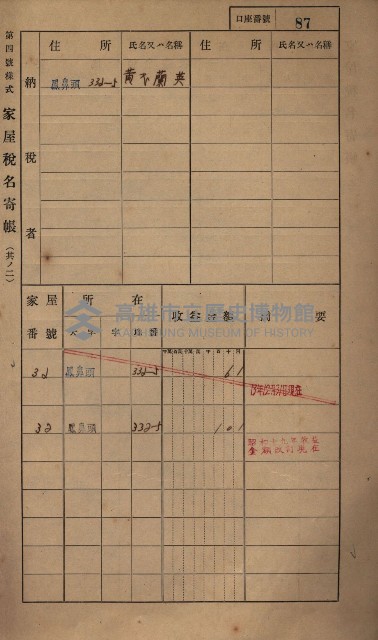 口座番號 87
第四號樣式 家屋稅名寄帳 (其ノ二)
納稅者
住所 氏名又ハ名稱 住所 氏名又ハ名稱
鳳鼻頭 332-5 黃 蘭英
家屋番號 所在 收益金額 摘要
大字 字 地番
高雄市立歷史博物館
KAOHSIUNG MUSEUM OF HISTORY
32 鳳鼻頭 332-5 61
32 鳳鼻頭 332-5 101
昭和十九年
金額改訂現在